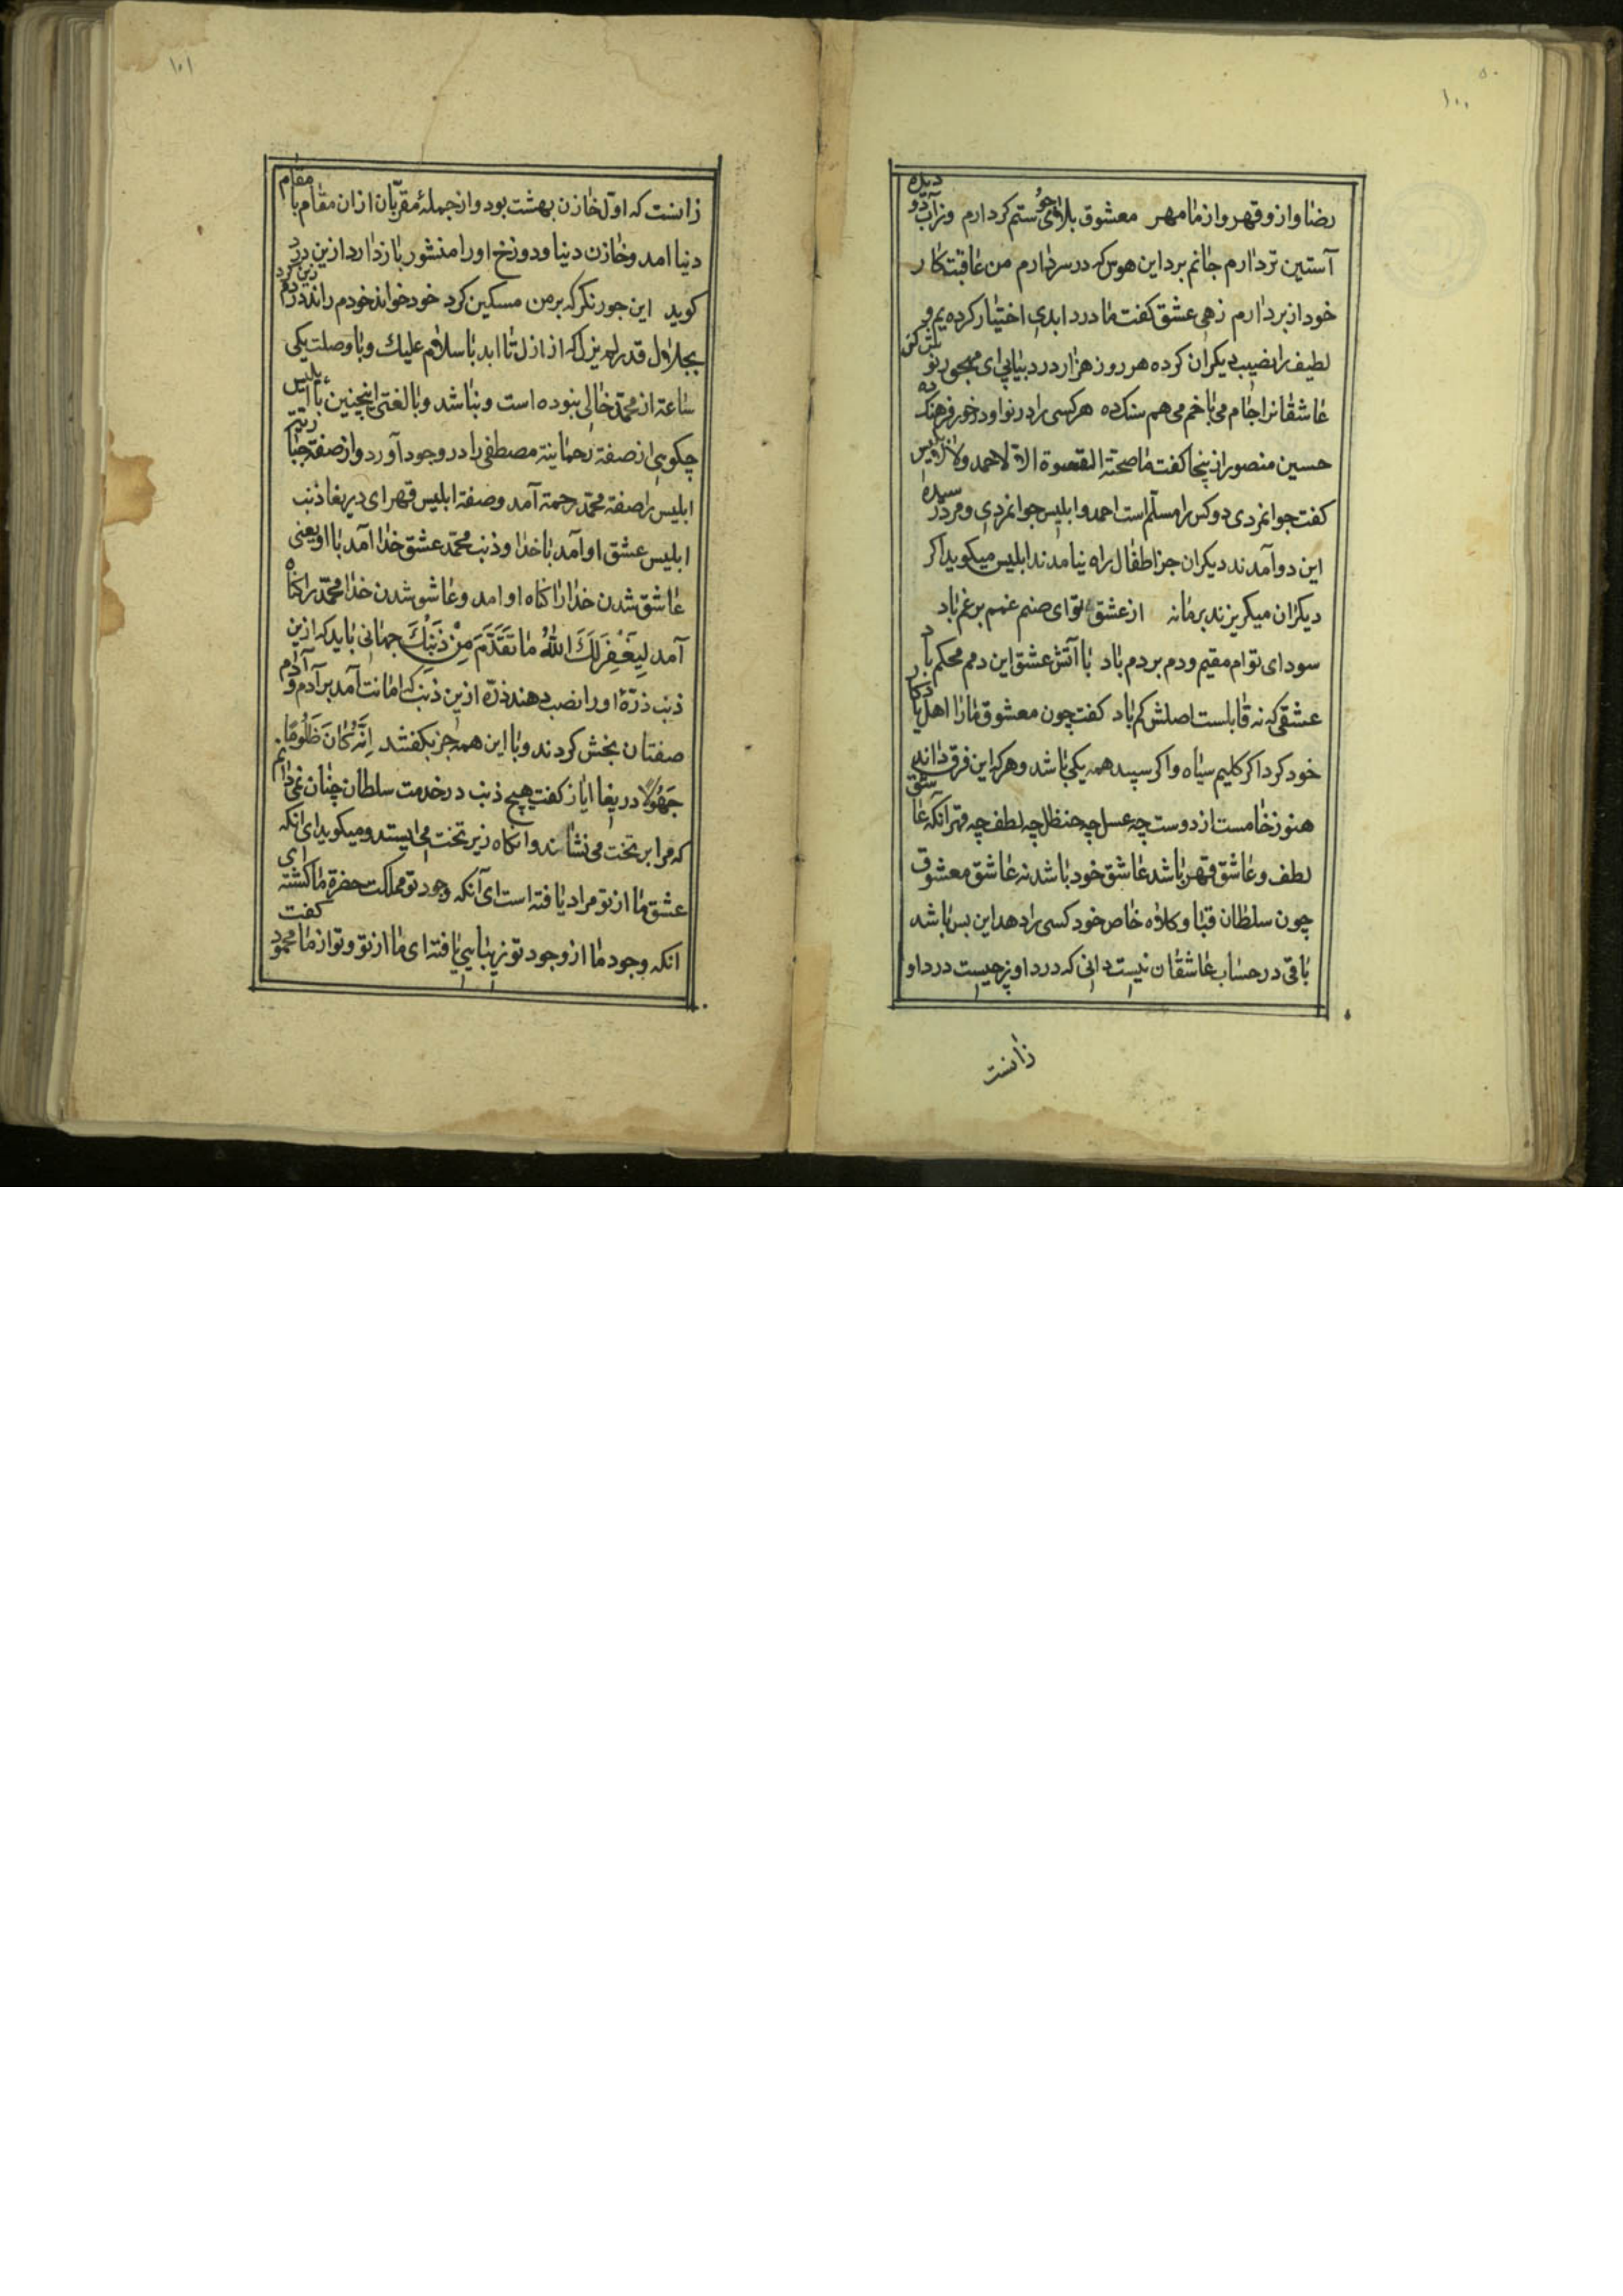 ۵۰
۱۰۰
رضا و ازو قهر و از ما مهر معشوق بلاجوی ستم کر دارم وز آب دو دیده
آستین تر دارم جانم برد این هوس که در سر دارم من عاقبت کار
خود از بر دارم زهی عشق کفت ما درد ابدی اختیار کرده یم و
لطیف را نصیب دیکران کرده هر روز هزار درد بیابی ای مهجور نو
عاشقانرا جام می با خم می هم سنک ده هر کسی را در نوا و درخور فرهنک ده
حسین منصور از ینجا کفت ما صحت الفتوة الا لاحمد ولابلیس
کفت جوانمردی دو کس را مسلم است احمد و ابلیس جوانمردی و مرد رسیده
این دو آمدند دیکران جز اطفال راه نیامدند ابلیس میکوید اکر
دیکران میکریزند بر ما نه از عشق تو ای صنم غمم بر غم باد
سودای توام مقیم و دم بر دم باد با آتش عشق این دمم محکم باد
عشقی که نه قابلست اصلش کم باد کفت چون معشوق ما را اهل یادکار
خود کرد اکر کلیم سیاه و اکر سپید همه یکی باشد و هر که این فرق داند
هنوز خامست از دوست چه عسل چه حنظل چه لطف چه قهر آنکه عاشق
لطف و عاشق قهر باشد عاشق خود باشد نه عاشق معشوق
چون سلطان قبا و کلاه خاص خود کسی را دهد این بس باشد
باقی در حساب عاشقان نیست دانی که درد او بر چیست درد او
زانست
۱۰۱
زانست که اول خازن بهشت بود و از جملۀ مقربان از ان مقام با مقام
دنیا امد و خازن دنیا و دوزخ او را منشور باز دارد ازین درد
کوید این جور نکر که بر من مسکین کرد خود خواند خودم راند دردم زین کرد
از ازل تا ابد با سلام علیك و با وصلت یکی
ساعة از محمد خالی نبوده است و نباشد و با لعنتی اینچنین با ابلیس
چکویی از صفة رحمانیة مصطفی را در وجود آورد و از صفة جباریة
ابلیس را صفة محمد رحمة آمد و صفة ابلیس قهر ای دریغا ذنب
ابلیس عشق او آمد با خدا و ذنب محمد عشق خدا آمد با او یعنی
عاشق شدن خدا را کناه او امد و عاشق شدن خدا محمد را کناه
آمد لِيَغْفِرَ لَكَ اللّٰهُ مَا تَقَدَّمَ مِنْ ذَنْبِكَ جهانی باید که ازین
ذنب ذرۀ او را نصیب دهند ذرۀ ازین ذنب که امانت آمد بر آدم و آدم
صفتان بخش کردند و با این همه جز بکفشد اِنَّهُ كَانَ ظَلُومًا
جَهُولًا دریغا ایاز کفت هیچ ذنب در خدمت سلطان چنان نمی دانم
که مرا بر تخت می نشاند و انکاه زیر تخت می ایستد و میکوید ای انکه
عشق ما از تو مراد یافته است ای آنکه وجود تو مملکت حضرة ما کشته ای
انکه وجود ما از وجود تو زیبایی یافته ای ما از تو و تو از ما محمود کفت